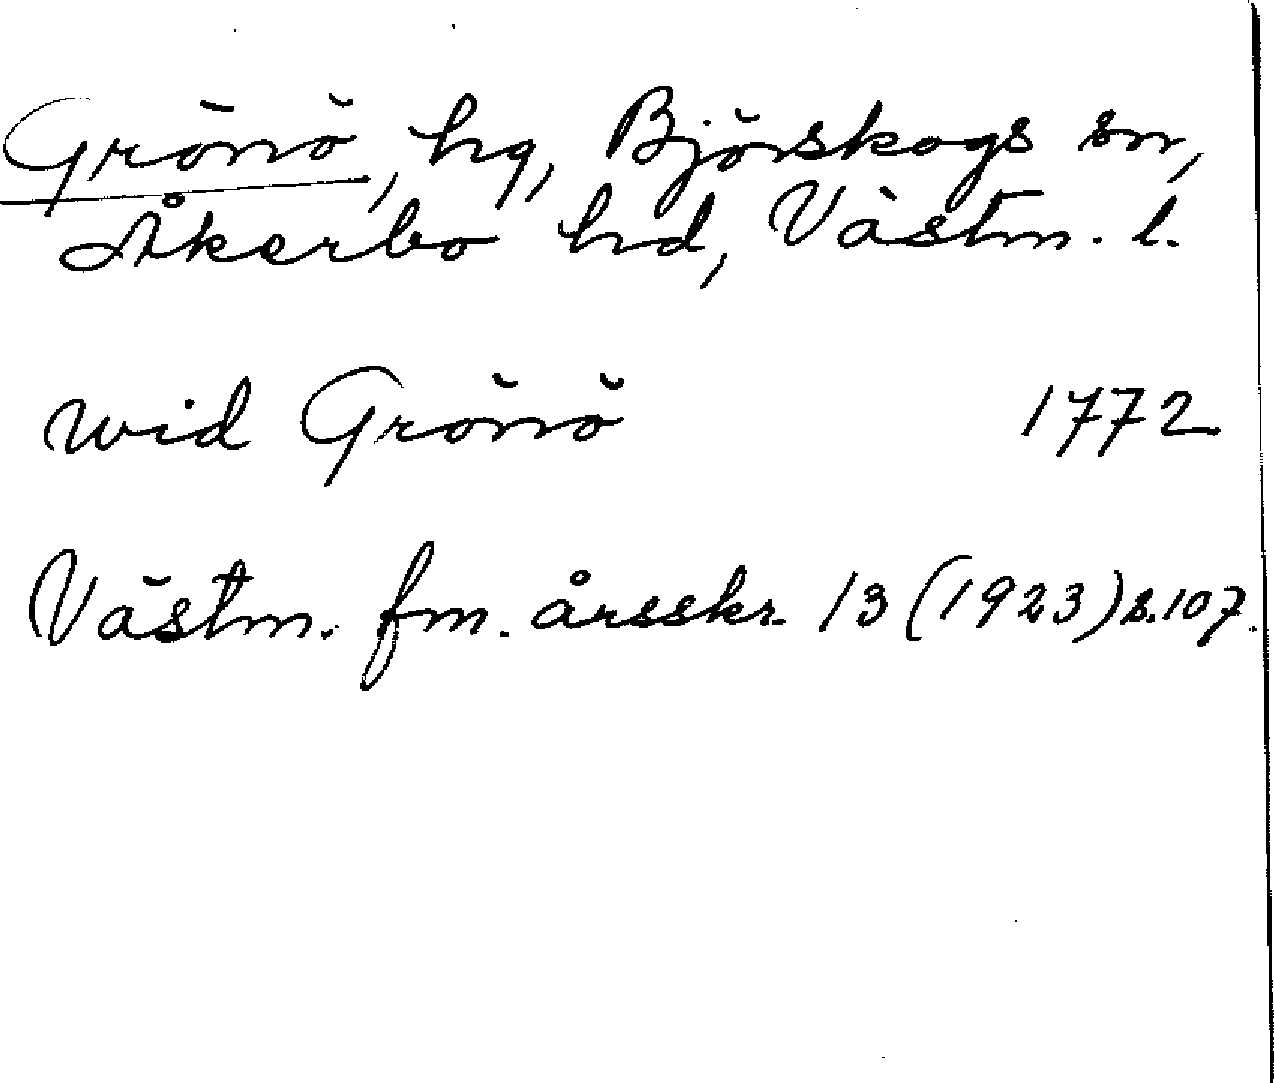 Grönö, hg, Björskogs sn,
Åkerbo hd, Västm. l.
wid Grönö 1772
Västm. fm. årsskr. 13 (1923) s. 107.